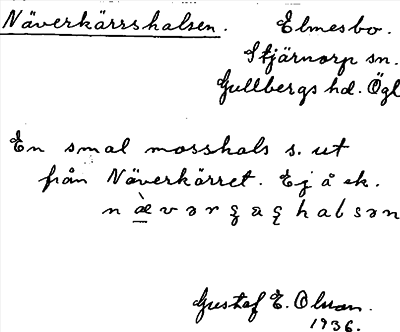 Näverkärrshalsen. Elmesbo.
Stjärnorp sn.
Gullbergs hd. Ögl
En smal mosshals s. ut
från Näverkärret. Ej å ek.
Gustaf E. Olsson.
1936.